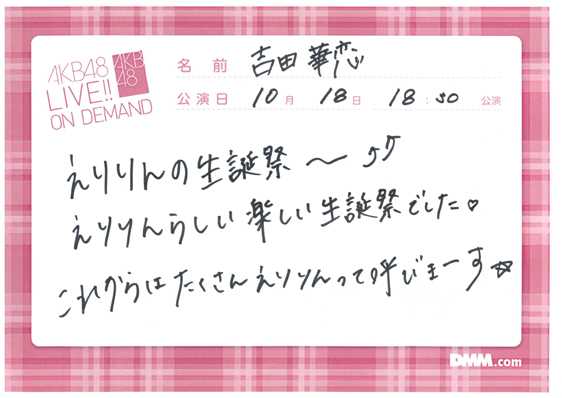 AKB48
LIVE!!
ON DEMAND
AKB
48
名前 吉田華恋
公演日 10月 18日 18:30 公演
えりりんの生誕祭〜ゲゲ
えりりんらしい楽しい生誕祭でした♡
これからはたくさんえりりんって呼びまーす☆
DMM.com